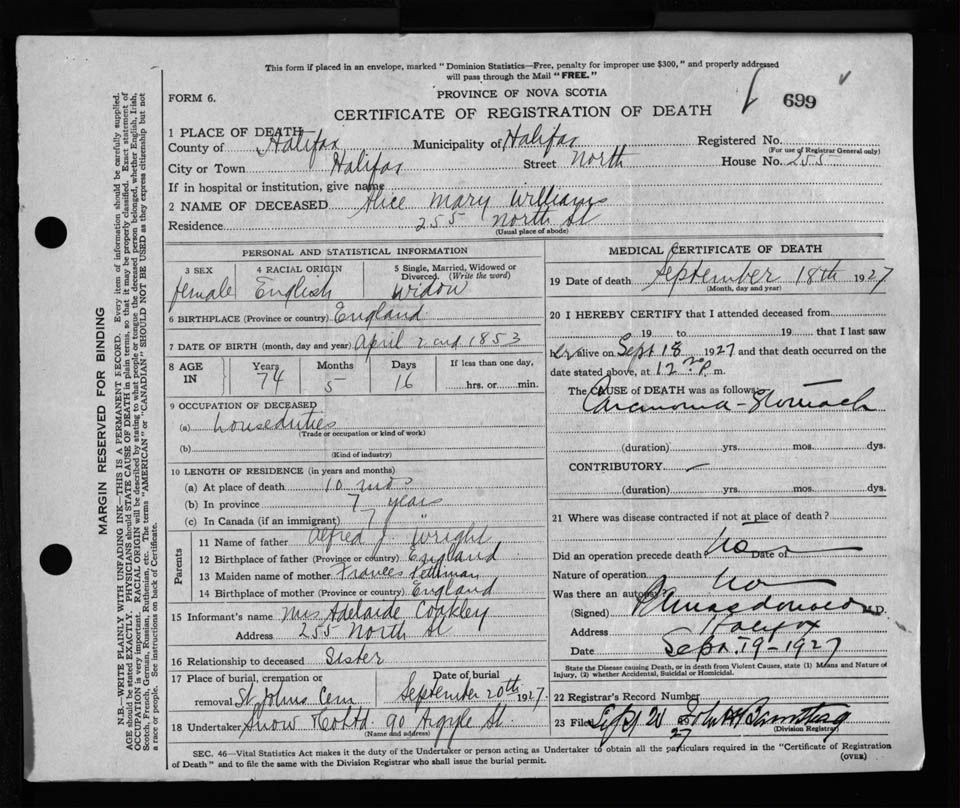 This form if placed in an envelope, marked "Dominion Statistics—Free, penalty for improper use $300," and properly addressed
will pass through the Mail "FREE."
FORM 6.
PROVINCE OF NOVA SCOTIA
699
CERTIFICATE OF REGISTRATION OF DEATH
1 PLACE OF DEATH—
County of Halifax Municipality of Halifax Registered No.
(For use of Registrar General only)
City or Town Halifax Street North House No. 255
If in hospital or institution, give name
2 NAME OF DECEASED Alice Mary Williams
Residence 255 North St
(Usual place of abode)
PERSONAL AND STATISTICAL INFORMATION
3 SEX 4 RACIAL ORIGIN 5 Single, Married, Widowed or
Divorced. (Write the word)
female English Widow
6 BIRTHPLACE (Province or country) England
7 DATE OF BIRTH (month, day and year) April 2nd 1853
8 AGE IN Years Months Days If less than one day,
74 5 16 hrs. or min.
9 OCCUPATION OF DECEASED
(a) houseduties
(Trade or occupation or kind of work)
(b)
(Kind of industry)
10 LENGTH OF RESIDENCE (in years and months)
(a) At place of death 10 mos
(b) In province 7 years
(c) In Canada (if an immigrant) 7 "
Parents
11 Name of father Alfred J. Wright
12 Birthplace of father (Province or country) England
13 Maiden name of mother Frances
14 Birthplace of mother (Province or country) England
15 Informant's name Mrs Adelaide Coakley
Address 255 North St
16 Relationship to deceased Sister
17 Place of burial, cremation or Date of burial
removal St Johns Cem September 20th 1927
18 Undertaker Snow & Co Ltd. 90 Argyle St.
(Name and address)
MEDICAL CERTIFICATE OF DEATH
19 Date of death September 18th 1927
(Month, day and year)
20 I HEREBY CERTIFY that I attended deceased from
19 to 19 that I last saw
her alive on Sept 18 1927 and that death occurred on the
date stated above, at 12 P m.
The CAUSE of DEATH was as follows:
Carcinoma - Stomach
(duration) yrs. mos. dys.
CONTRIBUTORY —
(duration) yrs. mos. dys.
21 Where was disease contracted if not at place of death?
Did an operation precede death? No Date of
Nature of operation
Was there an autopsy? No
(Signed) M.D.
Address Halifax
Date Sept. 19 - 1927
State the Disease causing Death, or in death from Violent Causes, state (1) Means and Nature of
Injury, (2) whether Accidental, Suicidal or Homicidal.
22 Registrar's Record Number
23 Filed Sept 21 27
(Division Registrar)
SEC. 46—Vital Statistics Act makes it the duty of the Undertaker or person acting as Undertaker to obtain all the particulars required in the "Certificate of Registration
of Death" and to file the same with the Division Registrar who shall issue the burial permit.
(OVER)
MARGIN RESERVED FOR BINDING
N.B.—WRITE PLAINLY WITH UNFADING INK—THIS IS A PERMANENT RECORD. Every item of information should be carefully supplied.
AGE should be stated EXACTLY. PHYSICIANS should STATE CAUSE OF DEATH in plain terms, so that it may be properly classified. Exact statement of
OCCUPATION is very important. RACIAL ORIGIN will be described by stating to what people or tongue the deceased person belonged, whether English, Irish,
Scotch, French, German, Russian, Ruthenian, etc. The terms "AMERICAN" or "CANADIAN" SHOULD NOT BE USED as they express citizenship but not
a race or people. See instructions on back of Certificate.